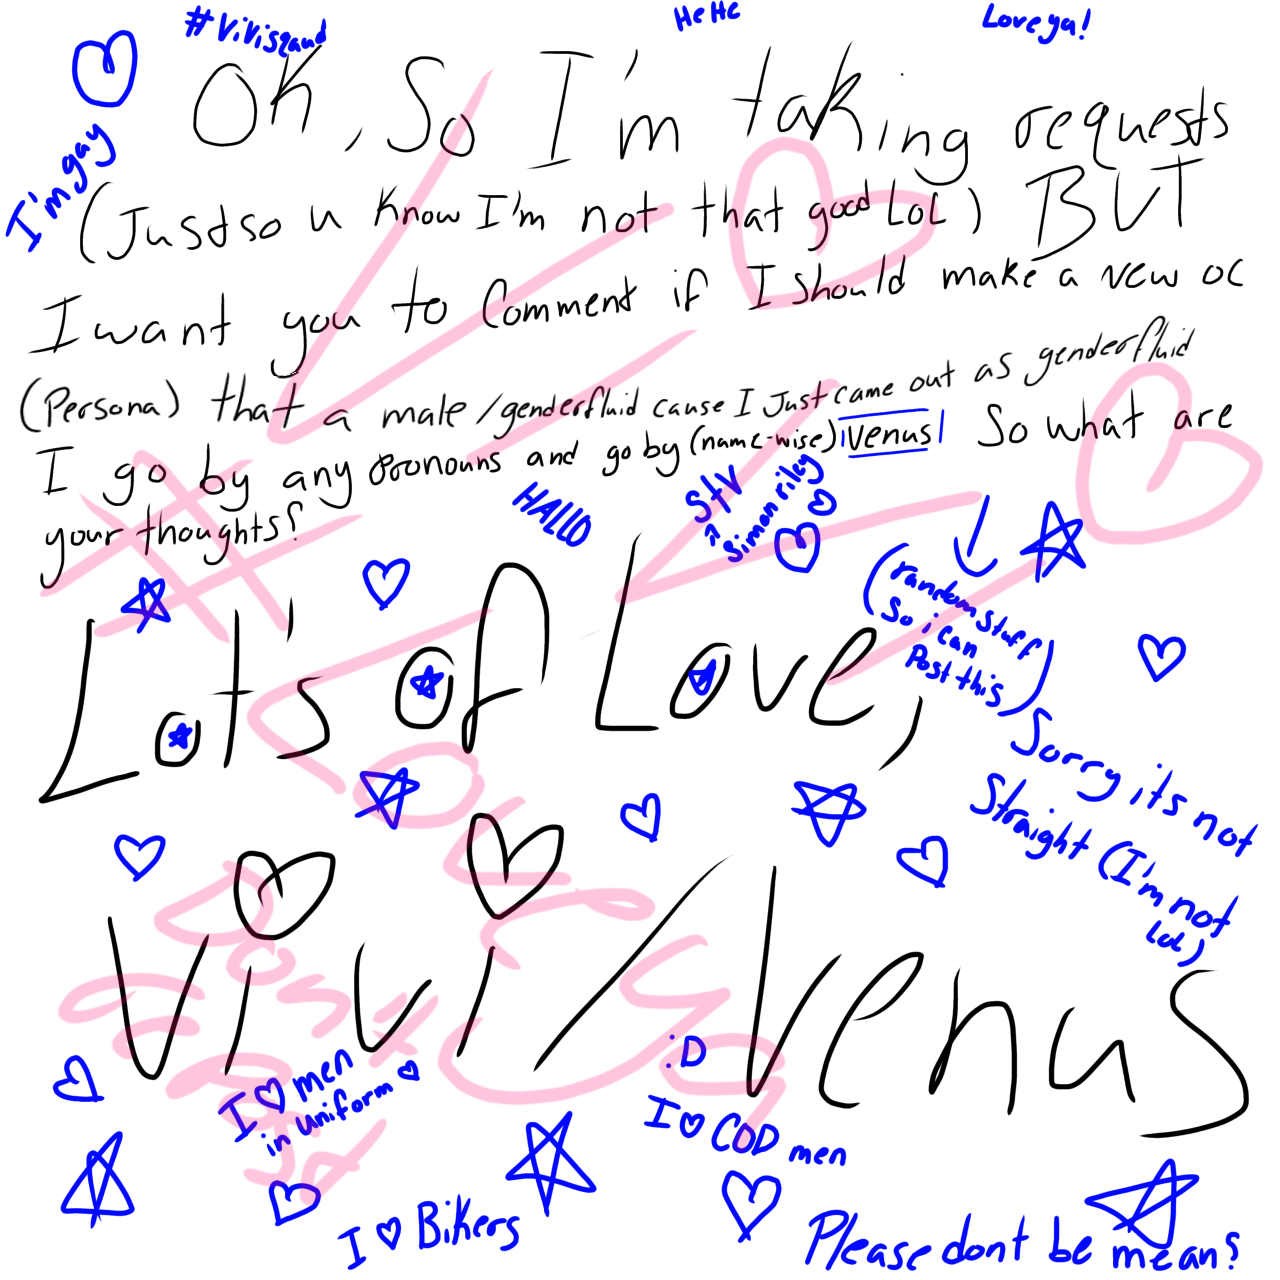 #Vivisqaud
HeHe
Love ya!
I'm gay
Ok, So I'm taking requests
(Just so u know I'm not that good LoL) BUT
I want you to Comment if I should make a new oc
(Persona) that a male/genderfluid cause I Just came out as genderfluid
I go by any pronouns and go by (name-wise) Venus So what are
your thoughts?
HALLO
STV
Simon riley
(random stuff
So i can
Post this)
Lot's of Love,
Sorry its not
Straight (I'm not
LoL)
Vivi/Venus
Love
Dont
I ♡ men
in uniform ♡
:D
I ♡ COD men
I ♡ Bikers
Please dont be mean?